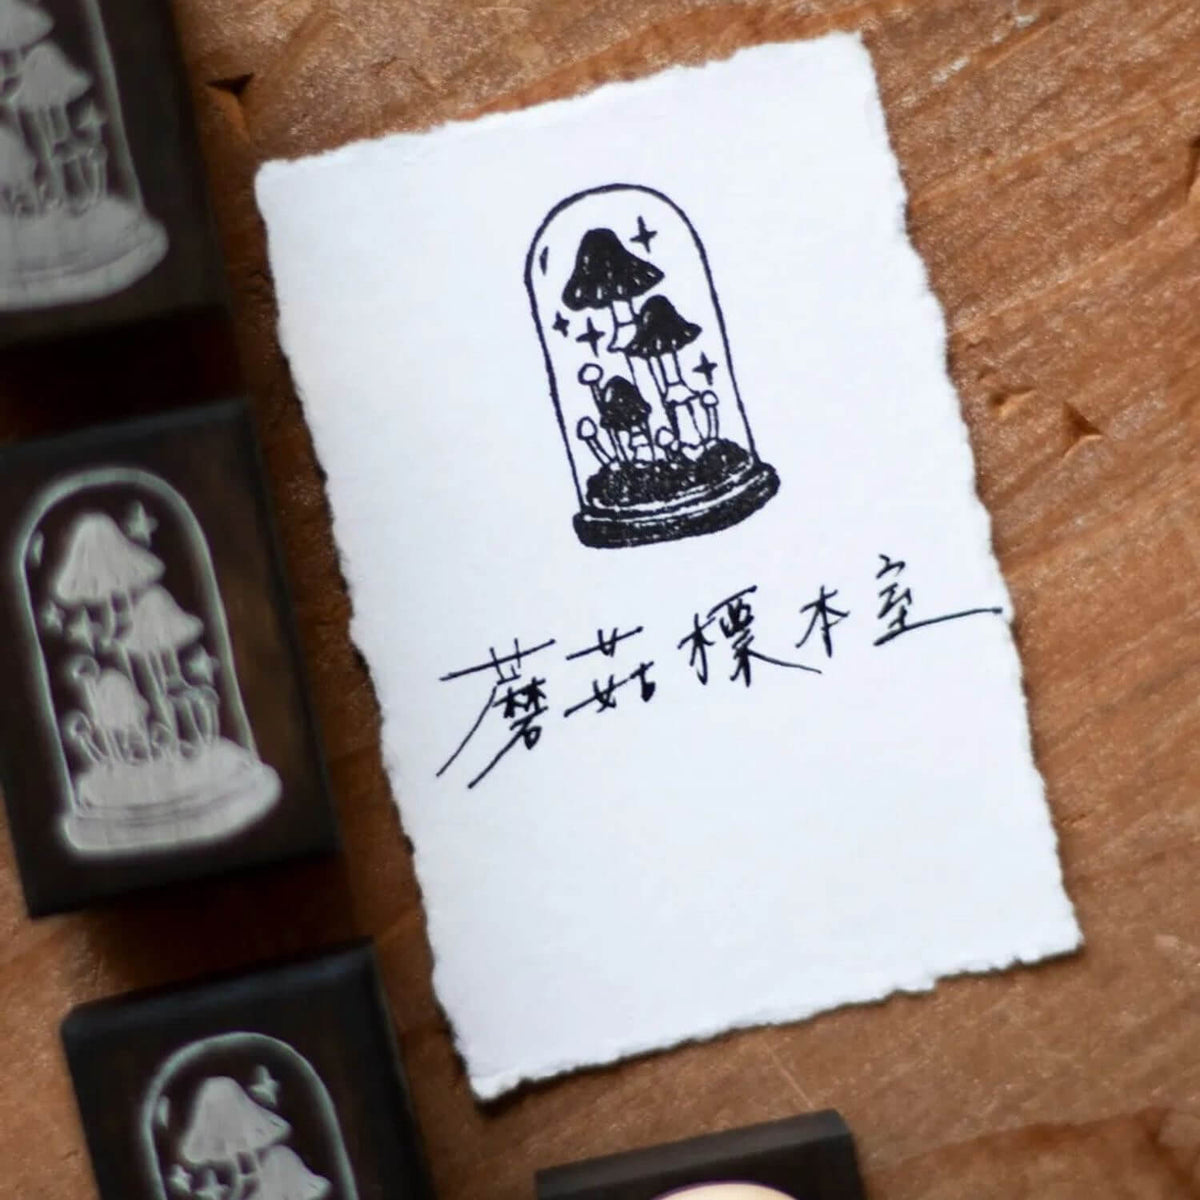 蘑菇標本室